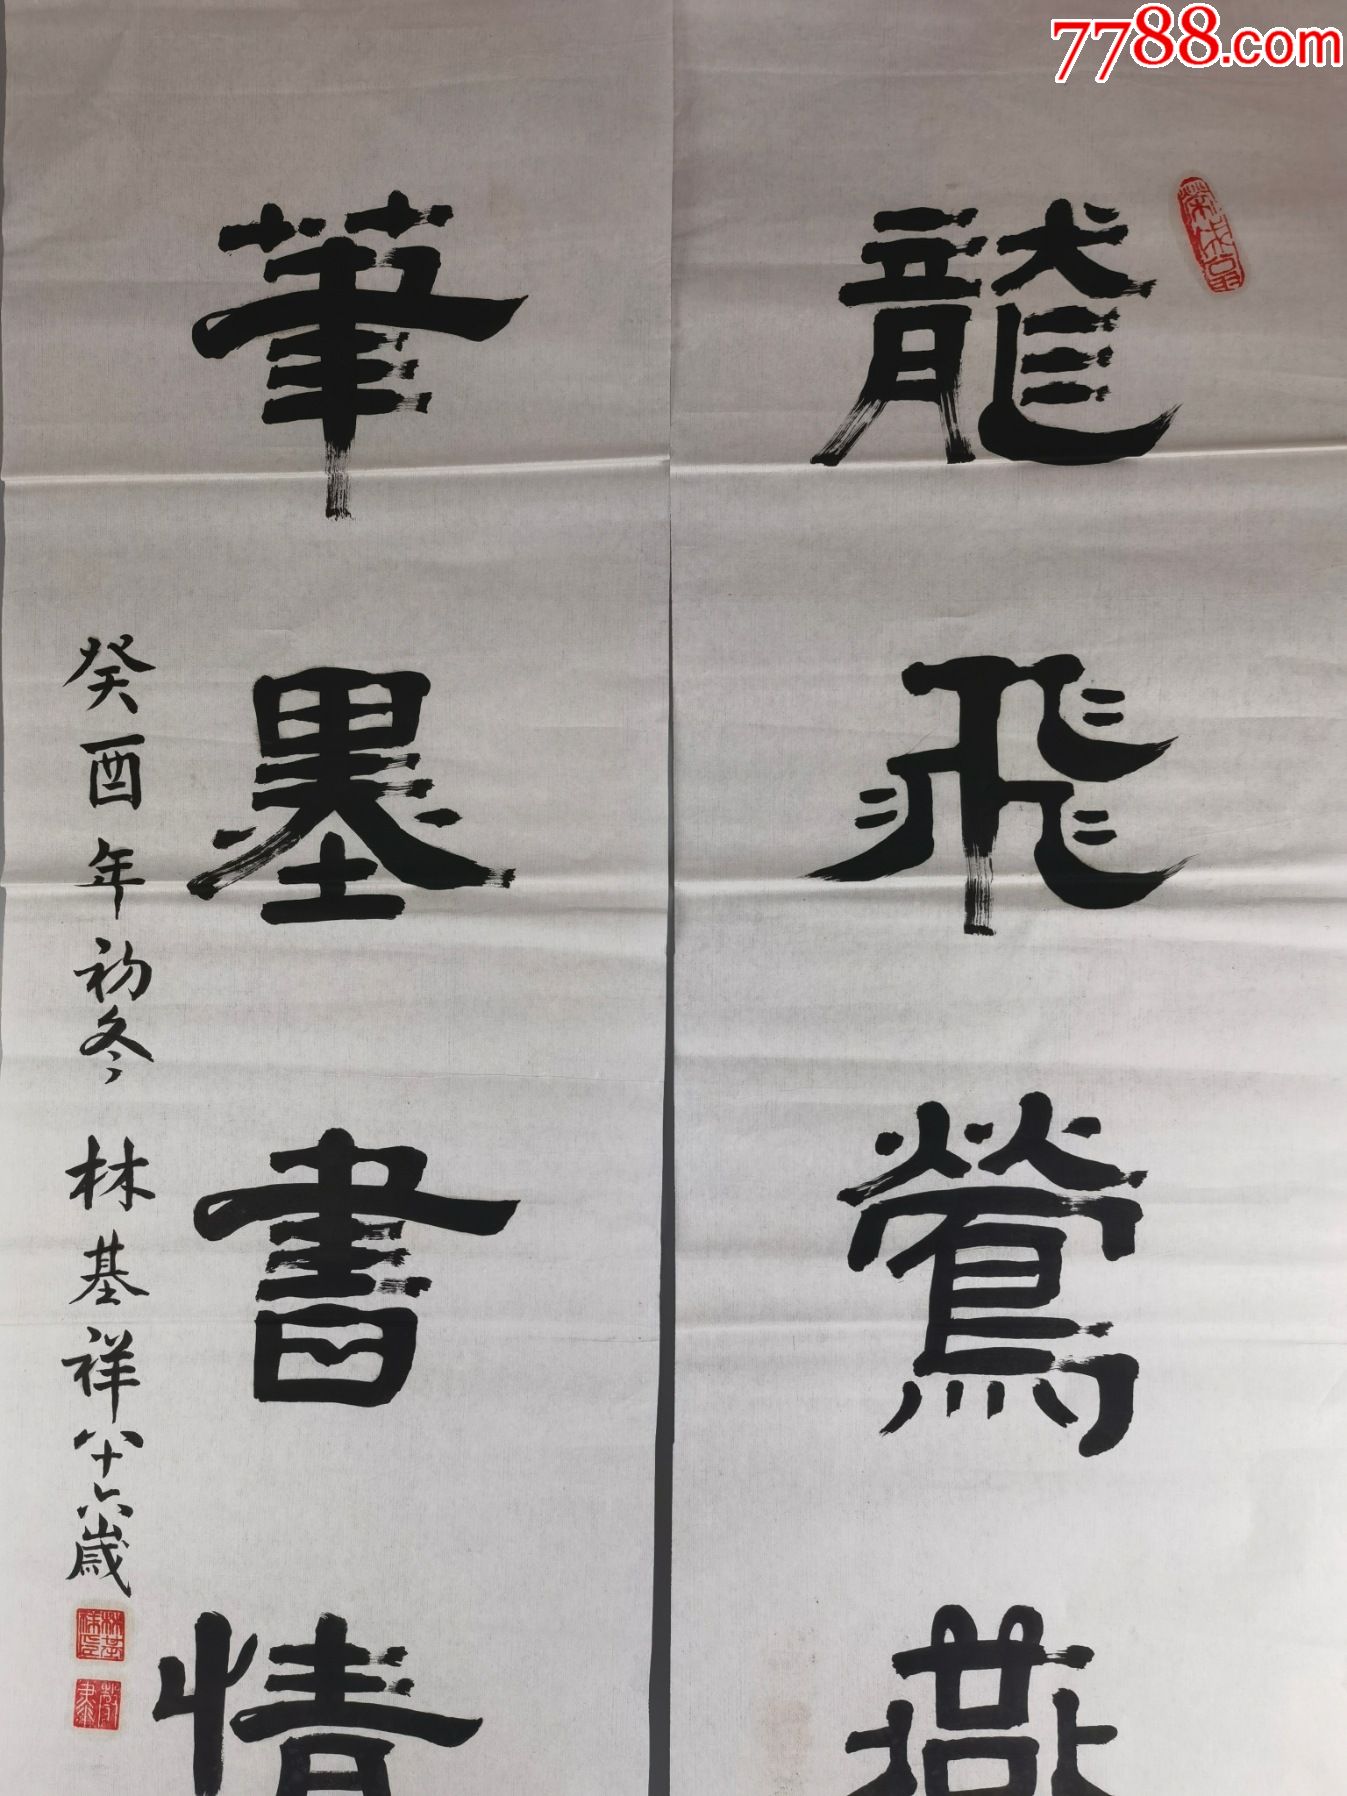 7788.com
龍飛鶯燕
筆墨書情
癸酉年初冬 林基祥八十六歲